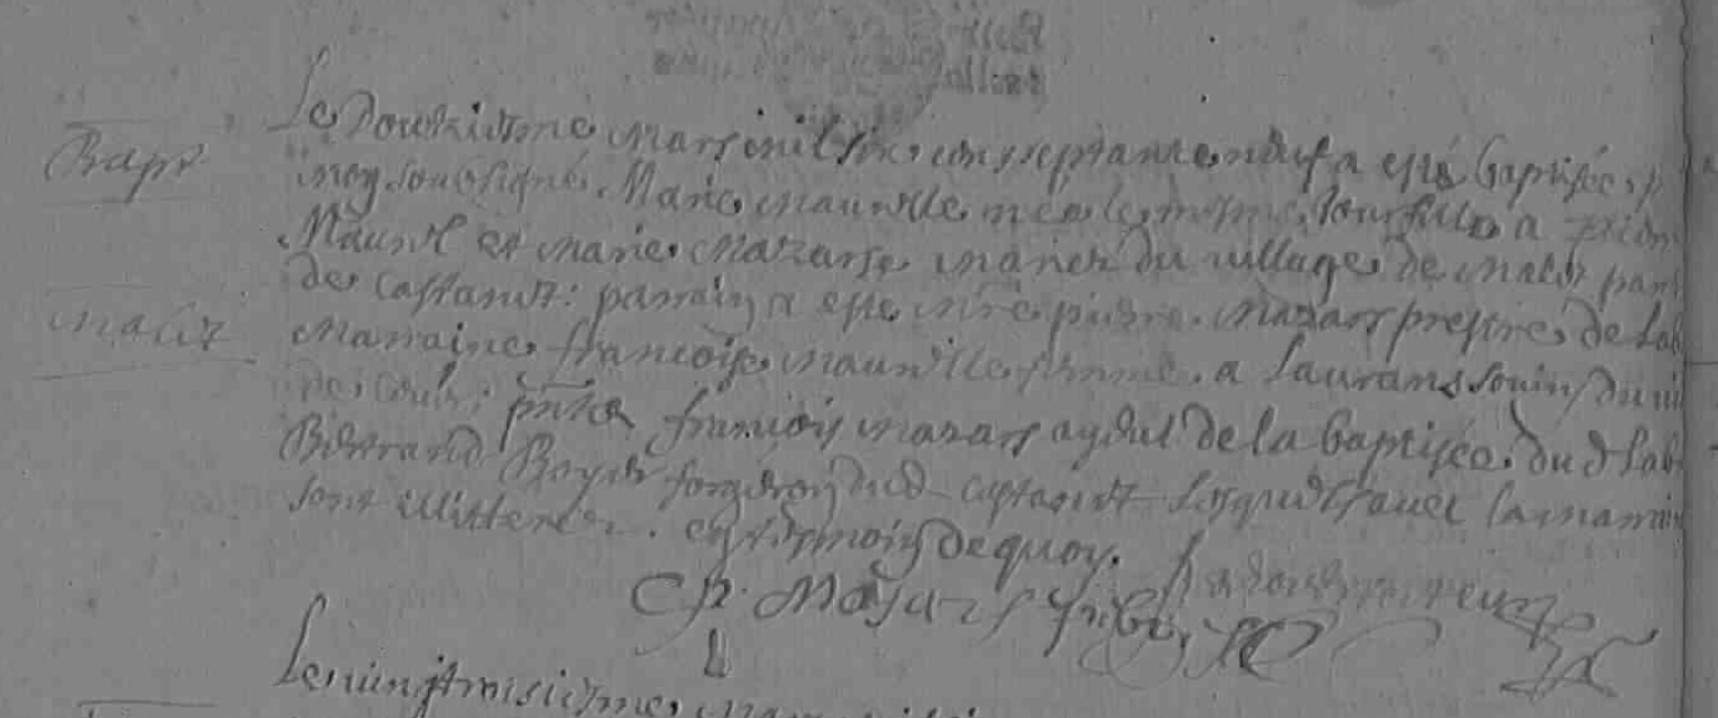 Bapt
Le douziesme mars mil six cens septante neuf a esté baptisée p
moy soubsigné Marie maurelle née le mesme jour fille a
Maurel et marie mazarse mariez du village de malet par
malet
de Castanet: parrain a esté mre pierre mazars prestre de Lab
marraine francoise maurelle femme a Laurans du
de presens francois mazars ayeul de la baptisée du d Lab
Bertrand Boyer forgeron dud castanet lesquels avec la marrain
sont illitterez. en tesmoin de quoy.
P. Mazars prbe
Le vingtroisiesme